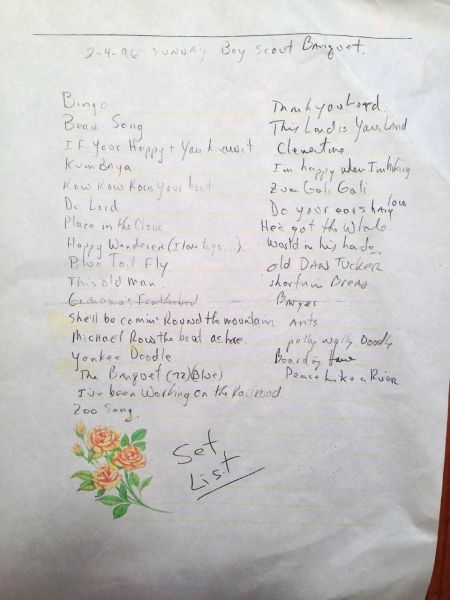 2-4-96 SUNDAY Boy Scout Banquet.
Bingo
Bear Song
IF Your Happy + You know it
Kum BAya
Row Row Row Your boat
Do Lord
Place in the Choir
Happy Wanderer (I love to go...)
Blue Tail Fly
This old man.
Grandma's Featherbed
She'll be comin' Round the mountain
Michael Row the boat ashore.
Yankee Doodle
The Banquet
I've been Working on the Railroad.
Zoo Song.
Thank you Lord.
This Land is Your Land
Clementine
I'm happy when I'm hiking
Zum Gali Gali
Do your ears hang low
He's got the Whole
World in his hands.
old DAN TUCKER
shortnin BREAD
ANTS
polly wolly Doodle
Peace Like a River
Set
List